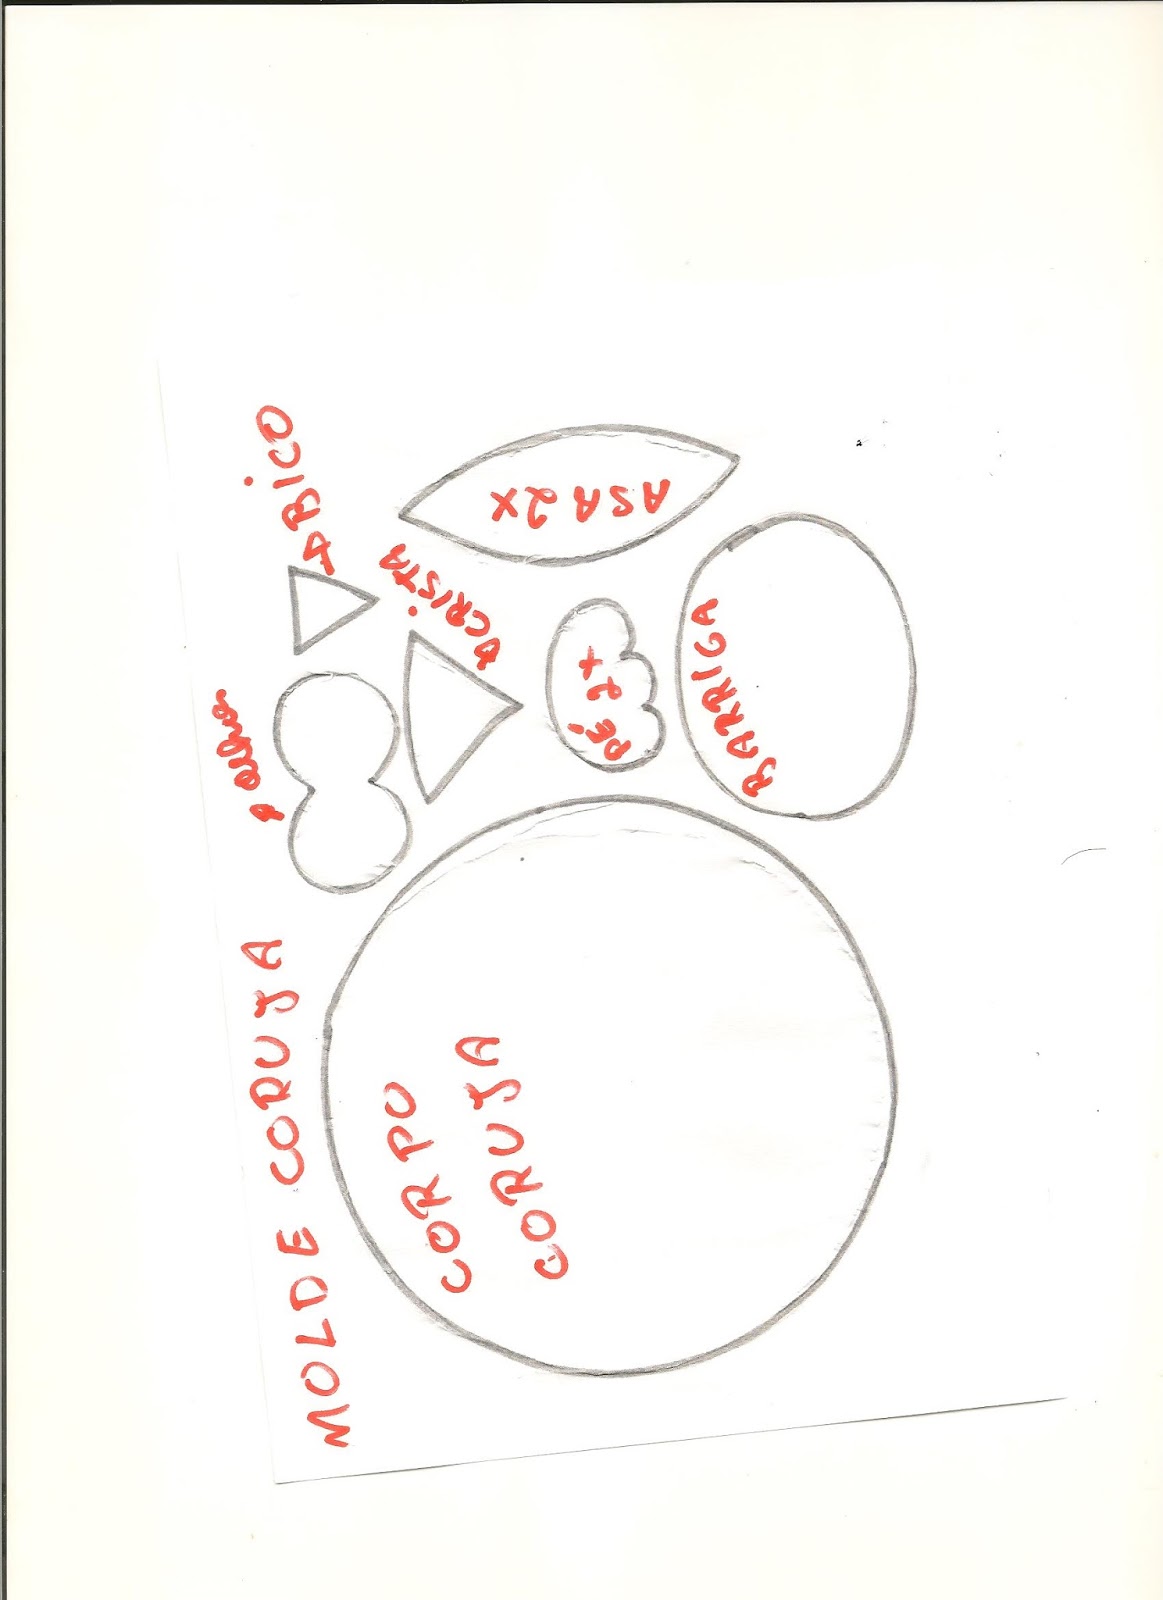 MOLDE CORUJA
olhos
BICO
CRISTA
ASA 2X
PÉ 2x
BARRIGA
CORPO
CORUJA